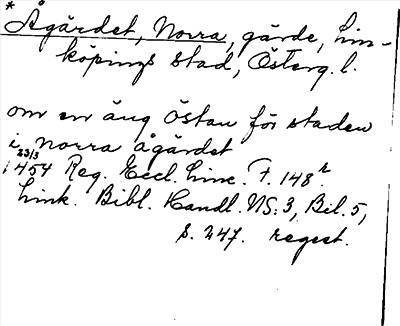 * Ågärdet, Norra, gärde, Lin-
köpings stad, Österg. l.
om en äng östan för staden
i norra ågärdet
23/3 1454 Reg. Eccl. Linc. F. 148 r.
Link. Bibl. Handl. NS: 3, Bil. 5,
s. 247. regest.